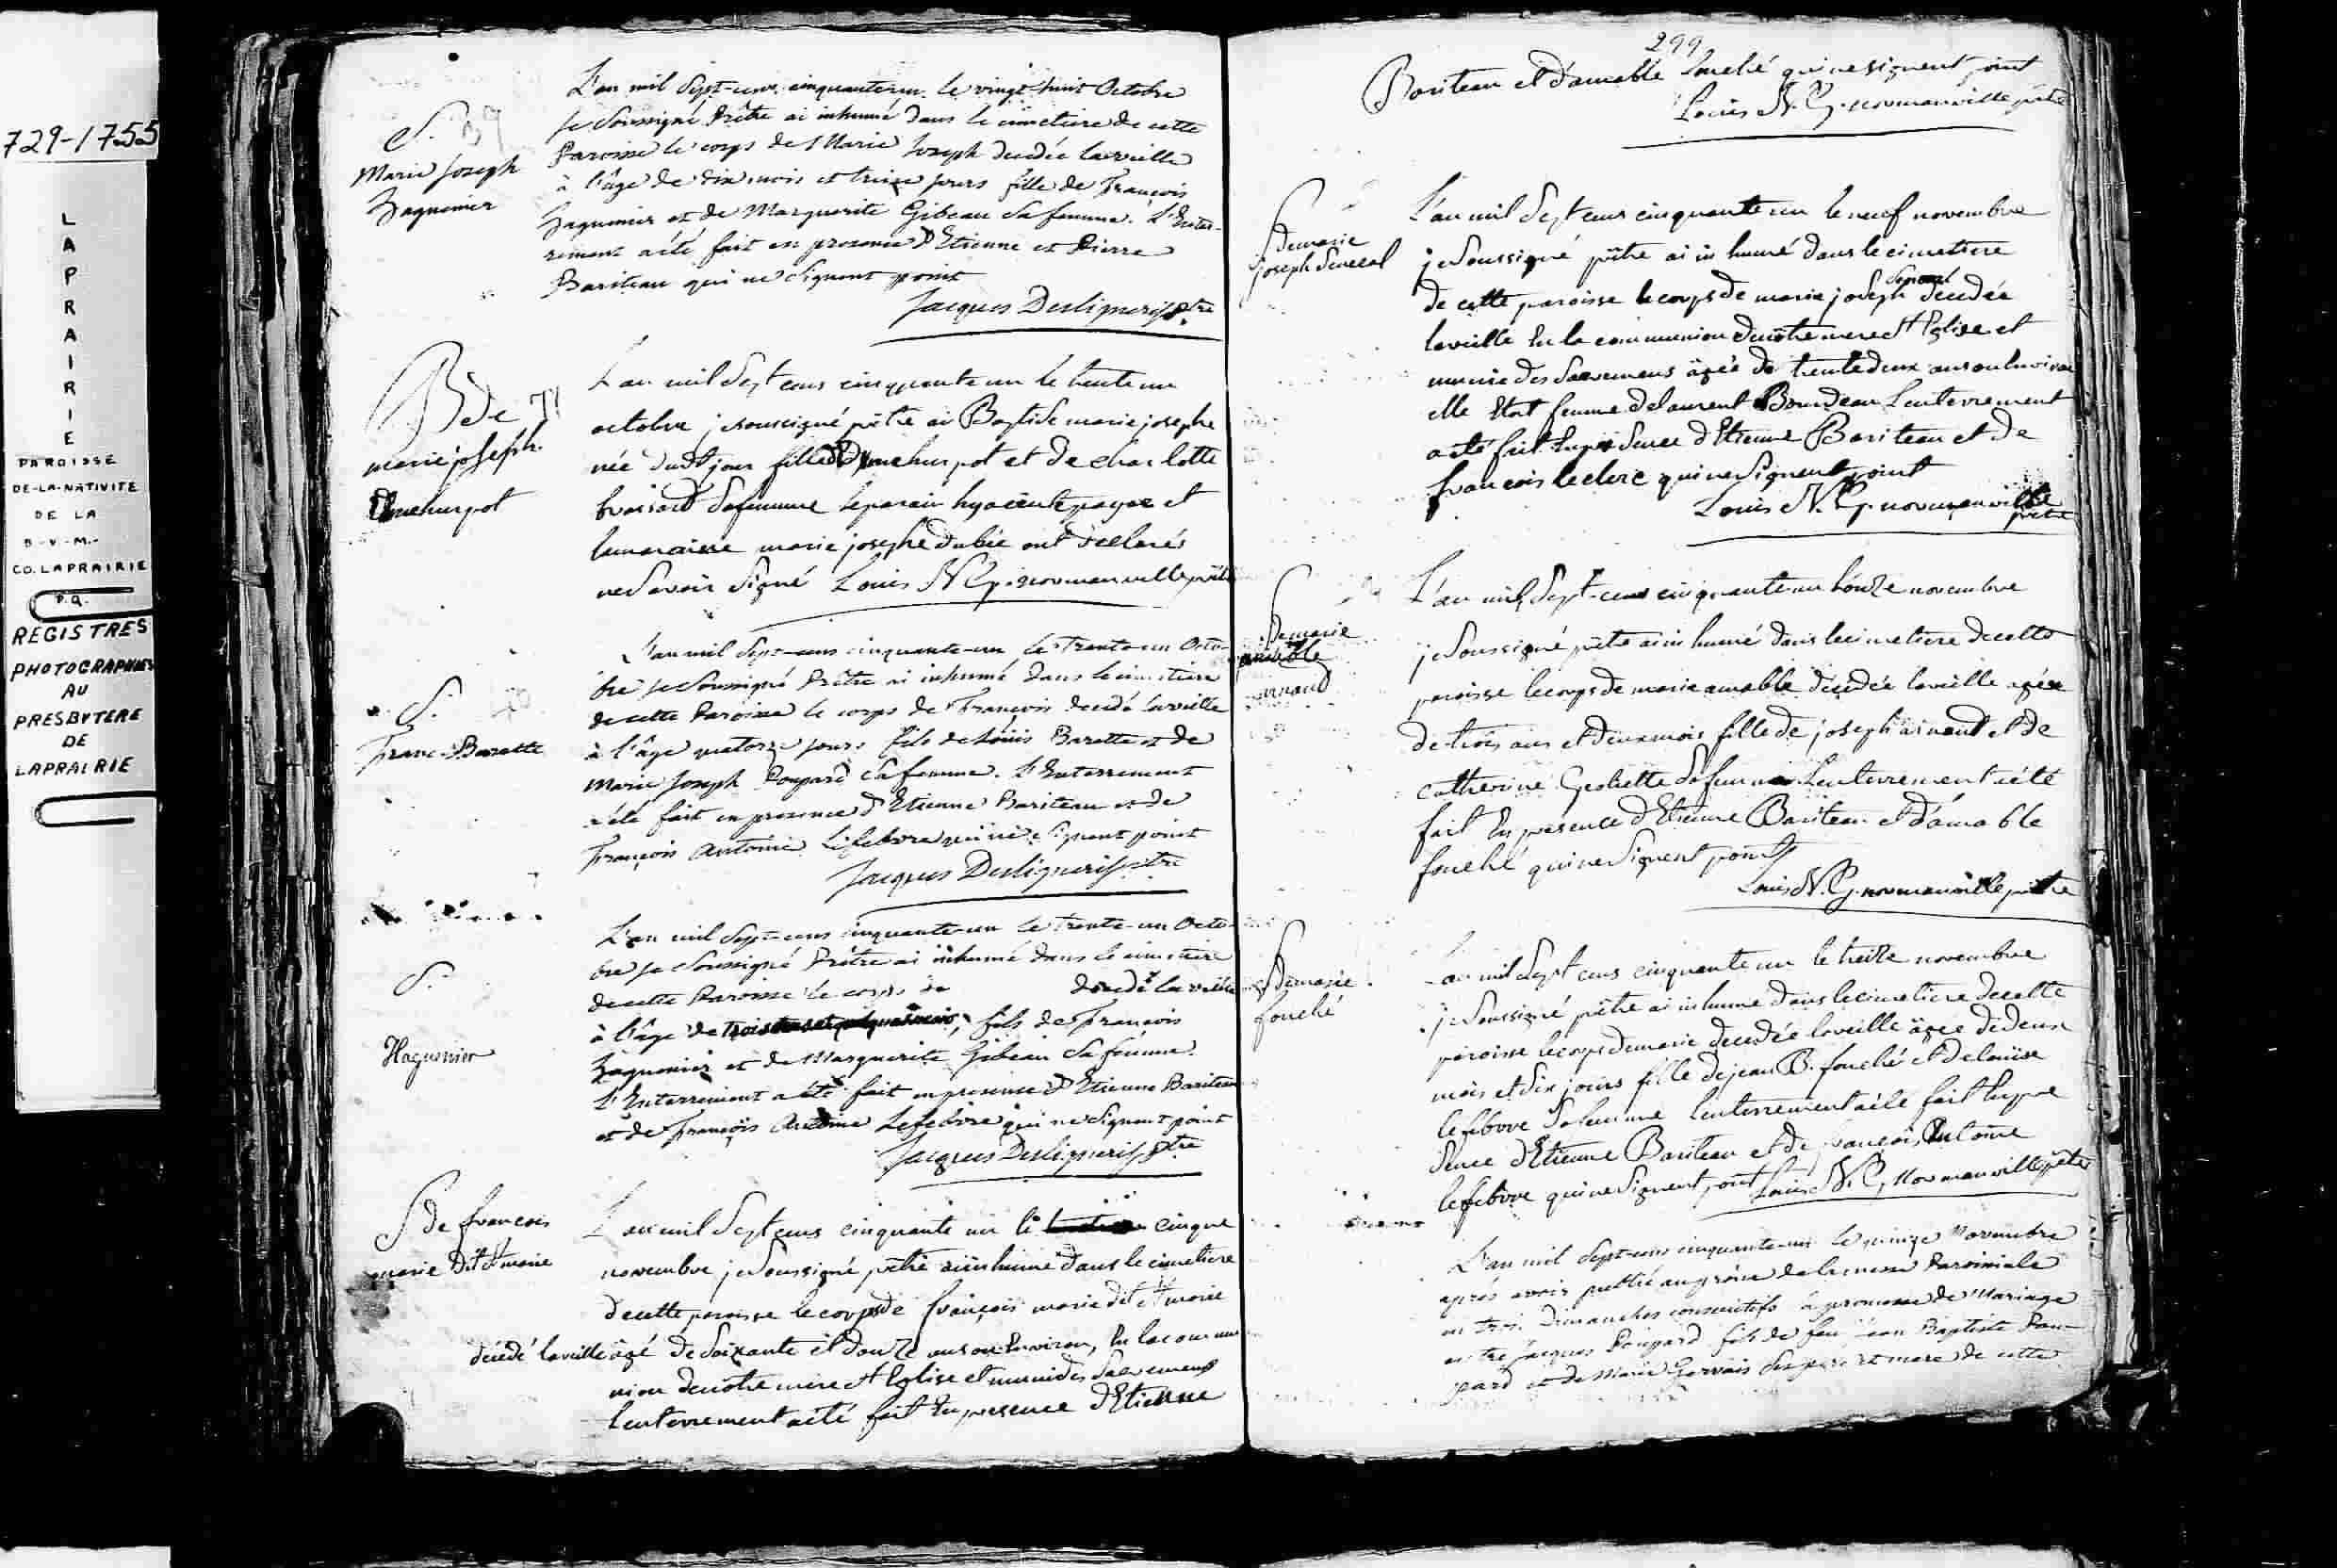 729-1755
LAPRAIRIE
PAROISSE
DE-LA-NATIVITE
DE LA
B.-V.-M.-
CO. LAPRAIRIE
P.Q.
REGISTRES
PHOTOGRAPHIES
AU
PRESBYTERE
DE
LAPRAIRIE
S.
Marie Joseph
Haguenier
L'an mil Sept-cens cinquante-un le vingt-huit Octobre
Je Soussigné Prêtre ai inhumé dans le cimetiere de cette
Paroisse le corps de Marie Joseph decedée la veille
à l'âge de dix mois et treize jours fille de François
Haguenier et de Marguerite Gibeau Sa femme. L'Enter-
rement a été fait en presence d'Etienne et Pierre
Bariteau qui ne Signent point
Jacques Desligneris Ptre
B de
marie joseph
L'an mil Sept cens cinquante un le trente un
octobre je soussigné prêtre ai Baptisé marie josephe
née dudt jour fille de et de charlotte
Sa femme le parain hyacinte payae et
la maraine marie josephe dubée ont declarés
ne Savoir Signé Louis N. G. normanville prêtre
S.
Franc. Barette
L'an mil Sept-cens cinquante-un le Trente-un Octo-
bre Je Soussigné Prêtre ai inhumé dans le cimetiere
de cette Paroisse le corps de François decedé la veille
à l'âge quatorze jours fils de Loüis Barette et de
Marie Joseph Poupard Sa femme. L'Enterrement
a été fait en presence d'Etienne Bariteau et de
François Antoine Lefebvre qui ne Signent point
Jacques Desligneris Ptre
S.
Haguenier
L'an mil Sept-cens cinquante-un le Trente-un Octo-
bre Je Soussigné Prêtre ai inhumé dans le cimetiere
de cette Paroisse le corps de decedé la veille
à l'âge de fils de François
Haguenier et de Marguerite Gibeau Sa femme.
L'Enterrement a été fait en presence d'Etienne Bariteau
et de François Antoine Lefebvre qui ne Signent point
Jacques Desligneris Ptre
S de francois
marie dit Ste marie
L'an mil Sept cens cinquante un le cinque
novembre je Soussigné prêtre ai inhumé dans le cimetiere
de cette paroisse le corps de françois marie dit Ste marie
décédé la veille agé de Soixante et douze ans ou Environ, En la commu
nion de nôtre mere Ste Eglise et muni des Sacremens
L'enterrement a été fait En presence d'Etienne
299
Bariteau et d'amable fouché qui ne signent point
Louis N. G. normanville prêtre
S de marie
joseph Senecal
L'an mil Sept cens cinquante un le neuf novembre
je Soussigné prêtre ai inhumé dans le cimetiere
Senecal
de cette paroisse le corps de marie joseph decedée
la veille En la communion de nôtre mere Ste Eglise et
munie des Sacremens âgée de trente deux ans ou Environ
elle Etoit femme de Laurent Bourdeau L'enterrement
a été fait En presence d'Etienne Bariteau et de
francois leclerc qui ne Signent point
Louis N. G. normanville
prêtre
S de marie
amable
L'an mil Sept-cens cinquante un L'onze novembre
je Soussigné prêtre ai inhumé dans le cimetiere de cette
paroisse le corps de marie amable décedée la veille agée
de trois ans et deux mois fille de joseph et de
catherine Sa femme L'enterrement a été
fait En presence d'Etienne Bariteau et d'amable
fouché qui ne Signent point
Louis N. G. normanville prêtre
S de marie
fouché
L'an mil Sept cens cinquante un le treize novembre
je Soussigné prêtre ai inhumé dans le cimetiere de cette
paroisse le corps de marie decedée la veille âgée de deux
mois et dix jours fille de jean B. fouché et de Loüise
lefebvre Sa femme L'enterrement a été fait En pre
Sence d'Etienne Bariteau et de françois Antoine
lefebvre qui ne Signent point Louis N. G. Normanville prêtre
L'an mil Sept-cens cinquante-un le quinze Novembre
après avoir publié au prône de la messe Paroissiale
en trois Dimanches consecutifs la promesse de Mariage
entre Jacques Poupard fils de feu Jean Baptiste Pou-
pard et de Marie Gervais Ses pere et mere de cette